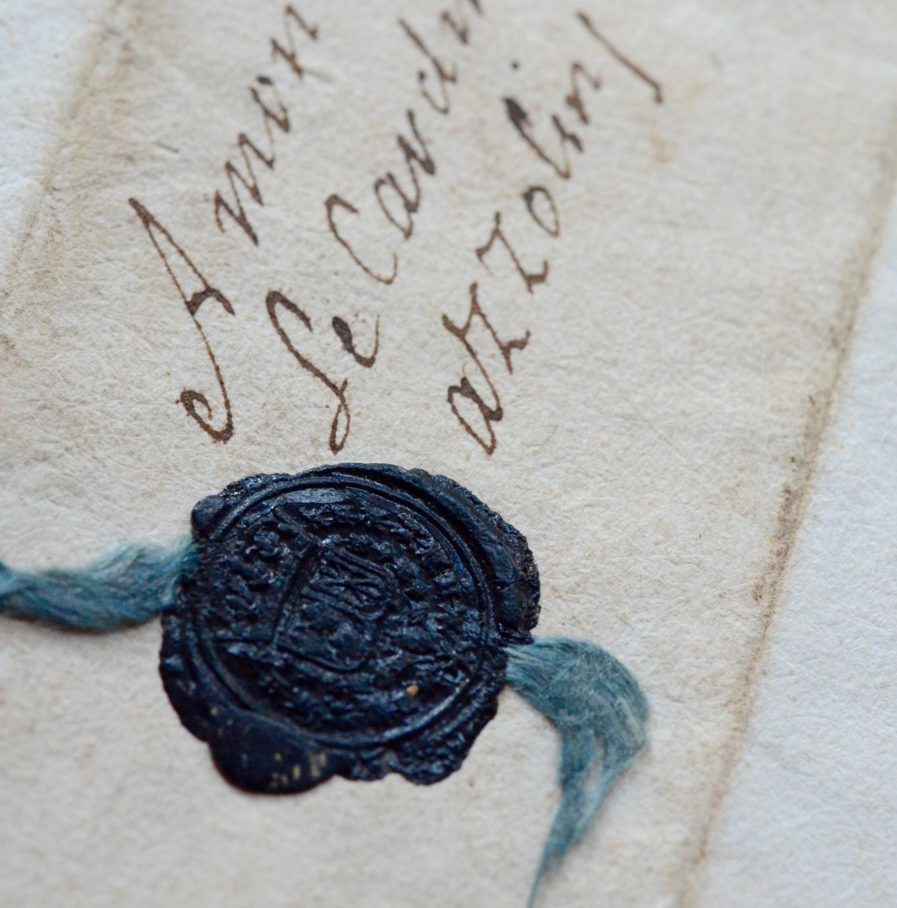 A mon
Le Cardin
azzolinj